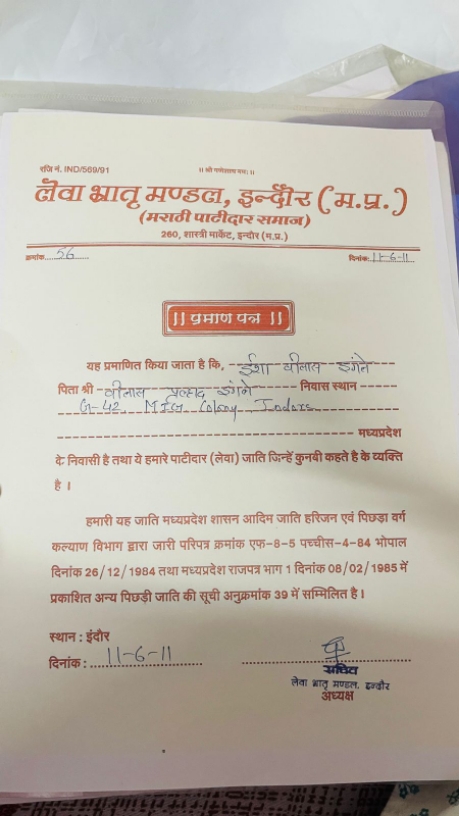 रजि नं. IND/569/91
।। श्री गणेशाय नमः ।।
लेवा भ्रातृ मण्डल, इन्दौर (म.प्र.)
(मराठी पाटीदार समाज)
260, शास्त्री मार्केट, इन्दौर (म.प्र.)
क्रमांक 56 दिनांक 11-6-11
|| प्रमाण पत्र ||
यह प्रमाणित किया जाता है कि, ईशा इंगले
पिता श्री प्रल्हाद इंगले निवास स्थान
G-42 MIG Colony Indore
मध्यप्रदेश
के निवासी है तथा ये हमारे पाटीदार (लेवा) जाति जिन्हें कुनबी कहते है के व्यक्ति
है ।
हमारी यह जाति मध्यप्रदेश शासन आदिम जाति हरिजन एवं पिछड़ा वर्ग
कल्याण विभाग द्वारा जारी परिपत्र क्रमांक एफ-8-5 पच्चीस-4-84 भोपाल
दिनांक 26/12/1984 तथा मध्यप्रदेश राजपत्र भाग 1 दिनांक 08/02/1985 में
प्रकाशित अन्य पिछड़ी जाति की सूची अनुक्रमांक 39 में सम्मिलित है।
स्थान : इंदौर
दिनांक : 11-6-11
सचिव
लेवा भ्रातृ मण्डल, इन्दौर
अध्यक्ष